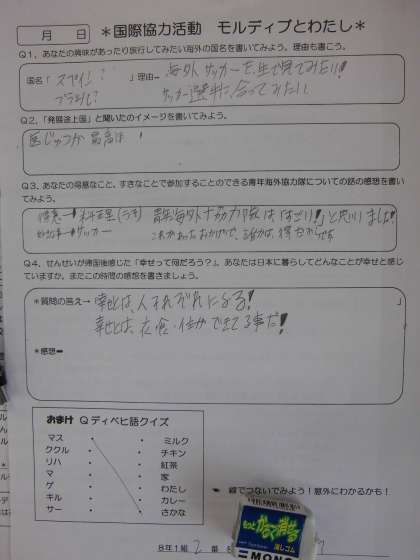 月　日
＊国際協力活動　モルディブとわたし＊
Q１，あなたの興味があったり旅行してみたい海外の国名を書いてみよう。理由も書こう。
国名「スペイン？　」理由→海外サッカーを生で見てみたい!
ブラジル？　サッカー選手に会ってみたい
Q２，「発展途上国」と聞いたイメージを書いてみよう。
Q３，あなたの得意なこと、すきなことで参加することのできる青年海外協力隊についての話の感想を書い
てみよう。
青年海外協力隊はすごい!と思いました!
サッカー
Q４，せんせいが帰国後感じた「幸せって何だろう？」。あなたは日本に暮らしてどんなことが幸せと感じ
ていますか。またこの時間の感想を書きましょう。
＊質問の答え→幸せとは、人それぞれになる!
幸せとは、衣・食・住ができてる事だ!
＊感想➡
おまけ　Q ディベヒ語クイズ
マス　ミルク
ククル　チキン
リハ　紅茶
マ　家
ゲ　わたし
キル　カレー
サー　さかな
線でつないでみよう！意外にわかるかも！
もっと
かるく消せる
消しゴム
MONO
8年1組　2　番